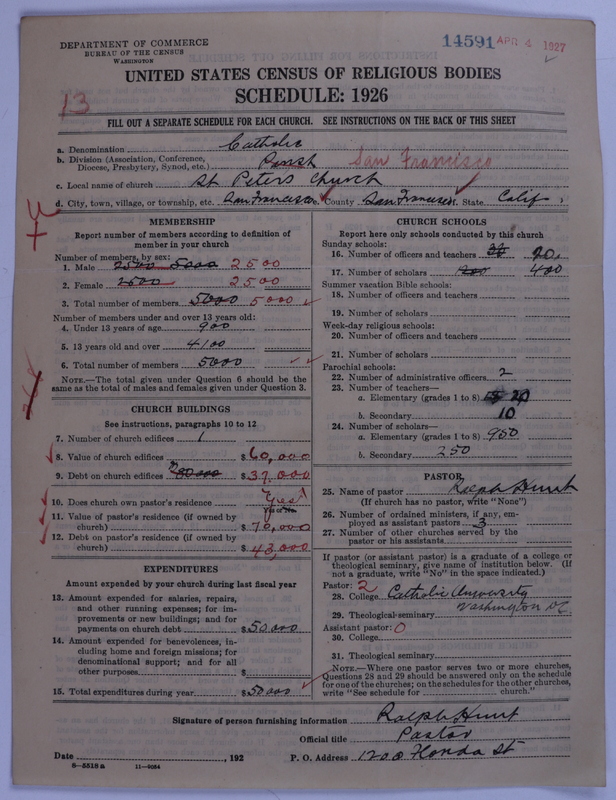 DEPARTMENT OF COMMERCE
BUREAU OF THE CENSUS
WASHINGTON
14591 APR 4 1927
UNITED STATES CENSUS OF RELIGIOUS BODIES
SCHEDULE: 1926
13
FILL OUT A SEPARATE SCHEDULE FOR EACH CHURCH. SEE INSTRUCTIONS ON THE BACK OF THIS SHEET
a. Denomination Catholic
b. Division (Association, Conference, Diocese, Presbytery, Synod, etc.) Parish San Francisco
c. Local name of church St Peters Church
d. City, town, village, or township, etc. San Francisco e. County San Francisco f. State Calif.
MEMBERSHIP
Report number of members according to definition of
member in your church
Number of members, by sex:
1. Male 2500 5000 2500
2. Female 2500 2500
3. Total number of members 5000 5000
Number of members under and over 13 years old:
4. Under 13 years of age 900
5. 13 years old and over 4100
6. Total number of members 5000
NOTE.—The total given under Question 6 should be the
same as the total of males and females given under Question 3.
CHURCH BUILDINGS
See instructions, paragraphs 10 to 12
7. Number of church edifices 1
8. Value of church edifices $ 60,000
9. Debt on church edifices 80000 $ 37,000
10. Does church own pastor's residence Yes
Yes or No
11. Value of pastor's residence (if owned by
church) $ 70,000
12. Debt on pastor's residence (if owned by
church) $ 43,000
EXPENDITURES
Amount expended by your church during last fiscal year
13. Amount expended for salaries, repairs,
and other running expenses; for im-
provements or new buildings; and for
payments on church debt $ 50000
14. Amount expended for benevolences, in-
cluding home and foreign missions; for
denominational support; and for all
other purposes $
15. Total expenditures during year $ 50000
CHURCH SCHOOLS
Report here only schools conducted by this church
Sunday schools:
16. Number of officers and teachers 20
17. Number of scholars 1200 400
Summer vacation Bible schools:
18. Number of officers and teachers
19. Number of scholars
Week-day religious schools:
20. Number of officers and teachers
21. Number of scholars
Parochial schools:
22. Number of administrative officers 2
23. Number of teachers—
a. Elementary (grades 1 to 8) 20
b. Secondary 10
24. Number of scholars—
a. Elementary (grades 1 to 8) 950
b. Secondary 250
PASTOR
25. Name of pastor Ralph Hunt
(If church has no pastor, write "None")
26. Number of ordained ministers, if any, em-
ployed as assistant pastors 3
27. Number of other churches served by the
pastor or his assistants
If pastor (or assistant pastor) is a graduate of a college or
theological seminary, give name of institution below. (If
not a graduate, write "No" in the space indicated.)
Pastor: 2
28. College Catholic University
Washington DC.
29. Theological seminary
Assistant pastor: 0
30. College
31. Theological seminary
NOTE.—Where one pastor serves two or more churches,
Questions 28 and 29 should be answered only on the schedule
for one of the churches; on the schedules for the other churches,
write "See schedule for church."
Signature of person furnishing information Ralph Hunt
Official title Pastor
Date , 192 P. O. Address 1200 Florida St
8—5518 a 11—9064